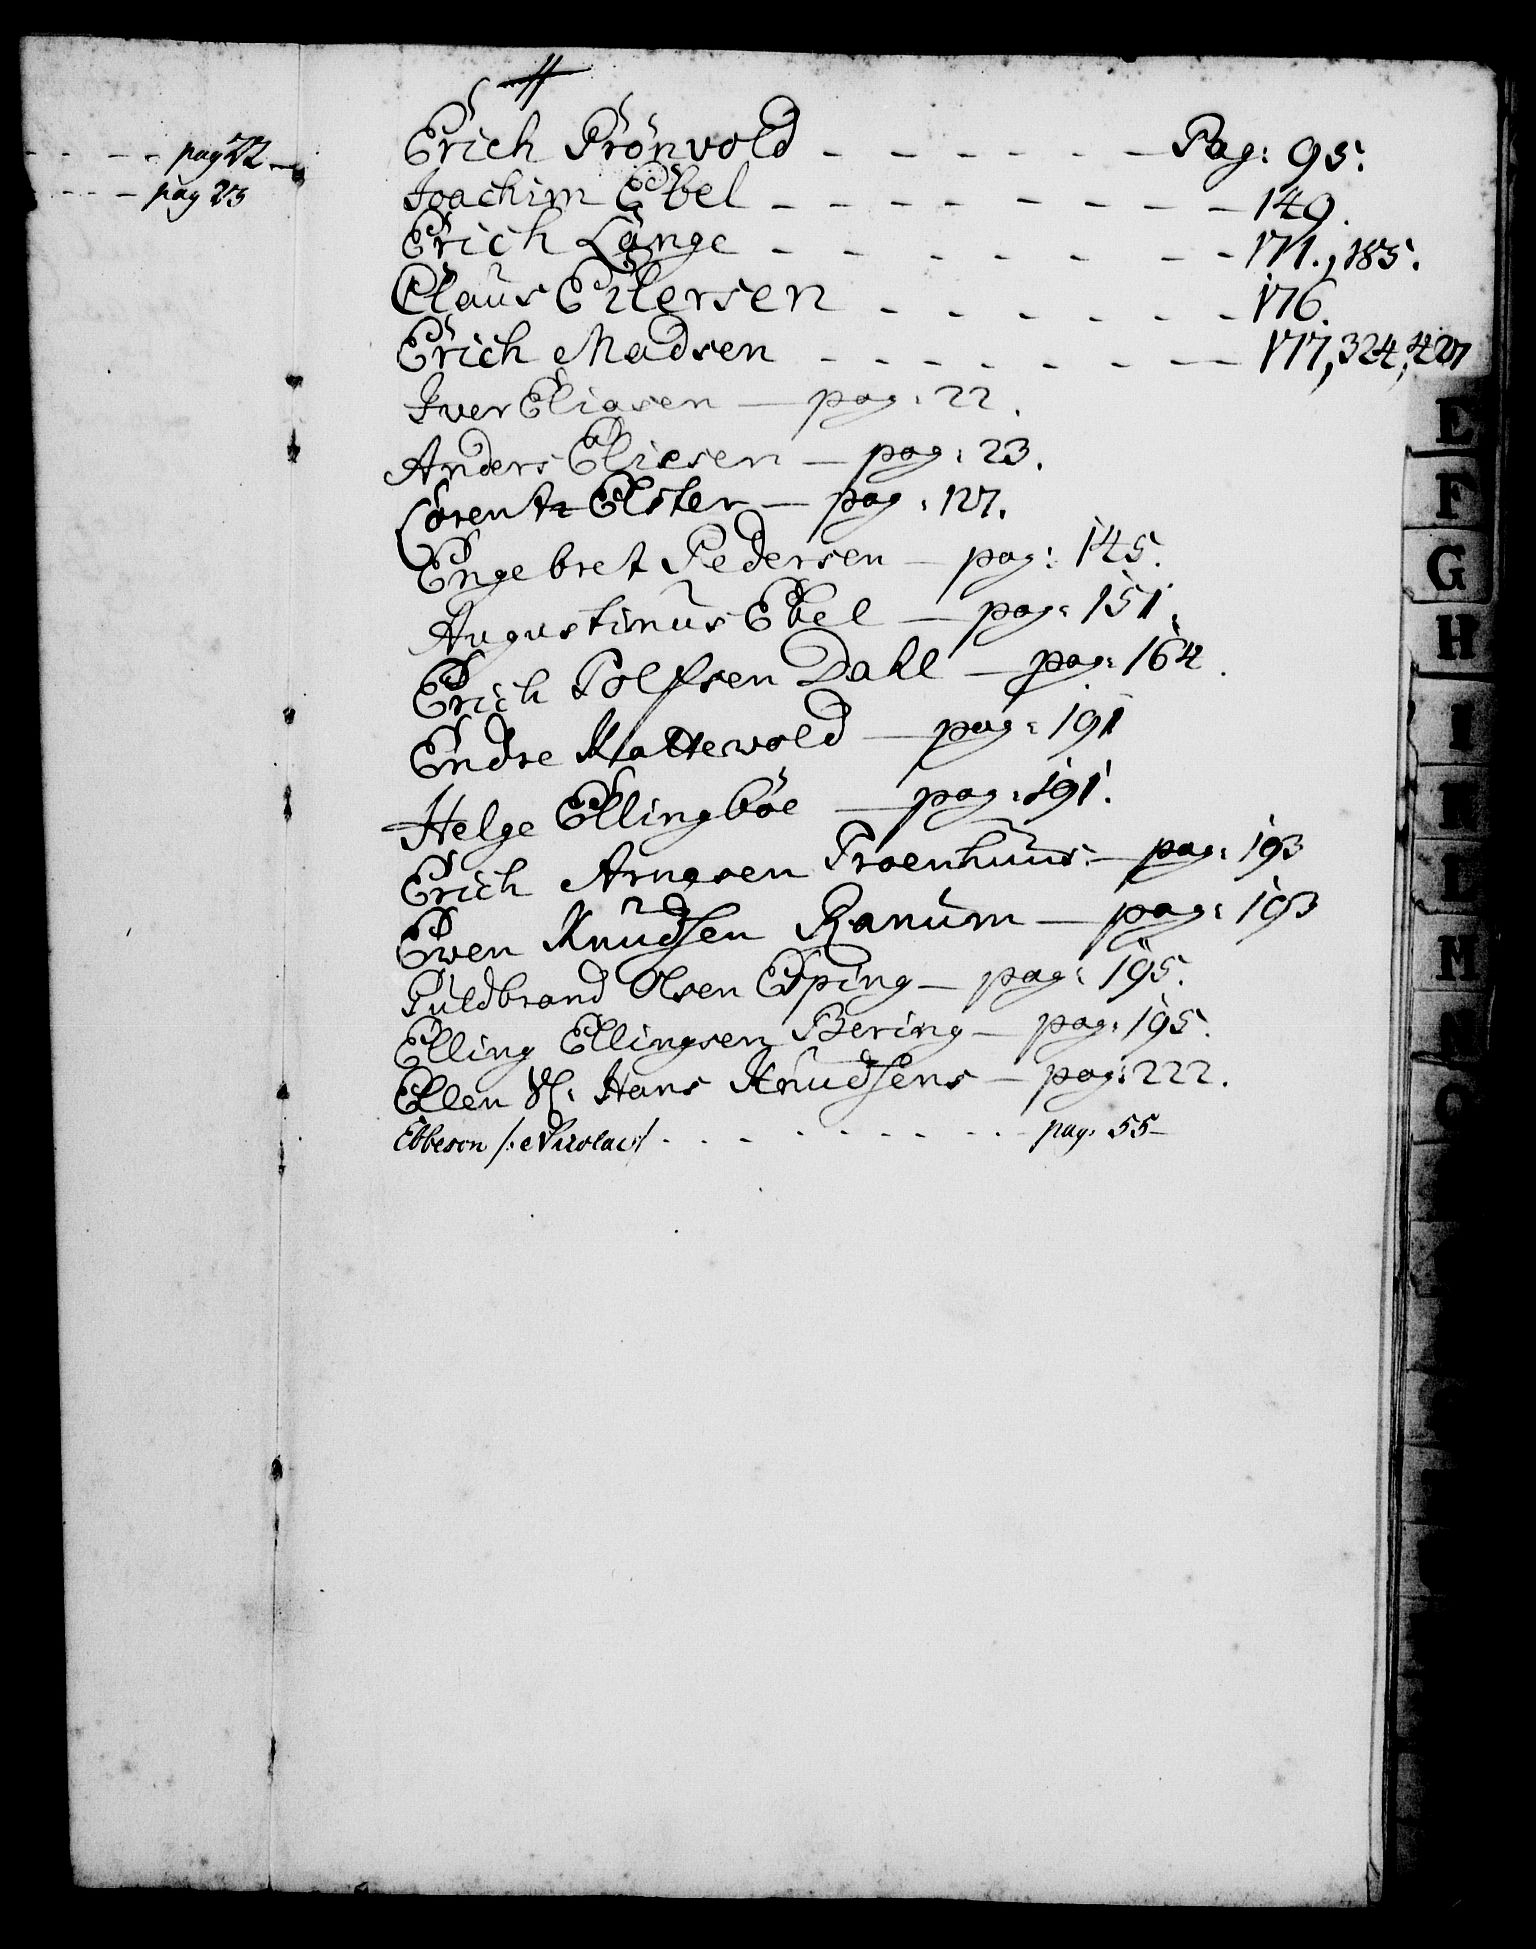 pag 22
pag 23
Erich Grönvold - - - - - - Pag: 95.
Joachim Ebel - - - - - - - 149.
Erich Lange - - - - - - - 171., 185.
Claus Eilersen - - - - - - 176.
Erich Madsen - - - - - - - 177, 324, 427
Iver Eliasen — pag: 22.
Anders Eliesen — pag: 23.
Lorentz Elster — pag: 127.
Engebret Pedersen — pag: 145.
Augustinus Ebel — pag: 151.
Erich Dahl — pag: 164.
Endre Kattevold — pag: 191
Helge Ellingböe — pag: 191.
Erich Arnesen — pag: 193
Even Knudsen Ranum — pag: 193
Guldbrand Olsen Esping — pag: 195.
Elling Ellingsen Bering — pag: 195.
Ellen Hans Knudsens — pag: 222.
Ebbeson /: Nicolai :/ - - - - - - - - pag: 55-
E
F
G
H
I
K
L
M
N
O